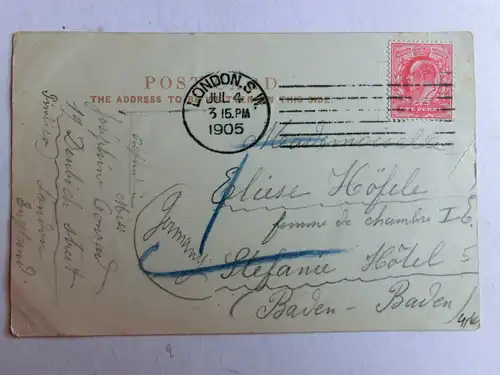 POST CARD
THE ADDRESS TO BE WRITTEN ON THIS SIDE.
LONDON. S.W.
JUL 4
3 15.PM
1905
ONE PENNY
Mademoiselle
Eliese Höfele
femme de chambre I E.
Stefanie Hôtel 5
Baden-Baden
(Germany)
Miss
Josephine Conrad
19 Denbigh Street
Pimlico London
England.